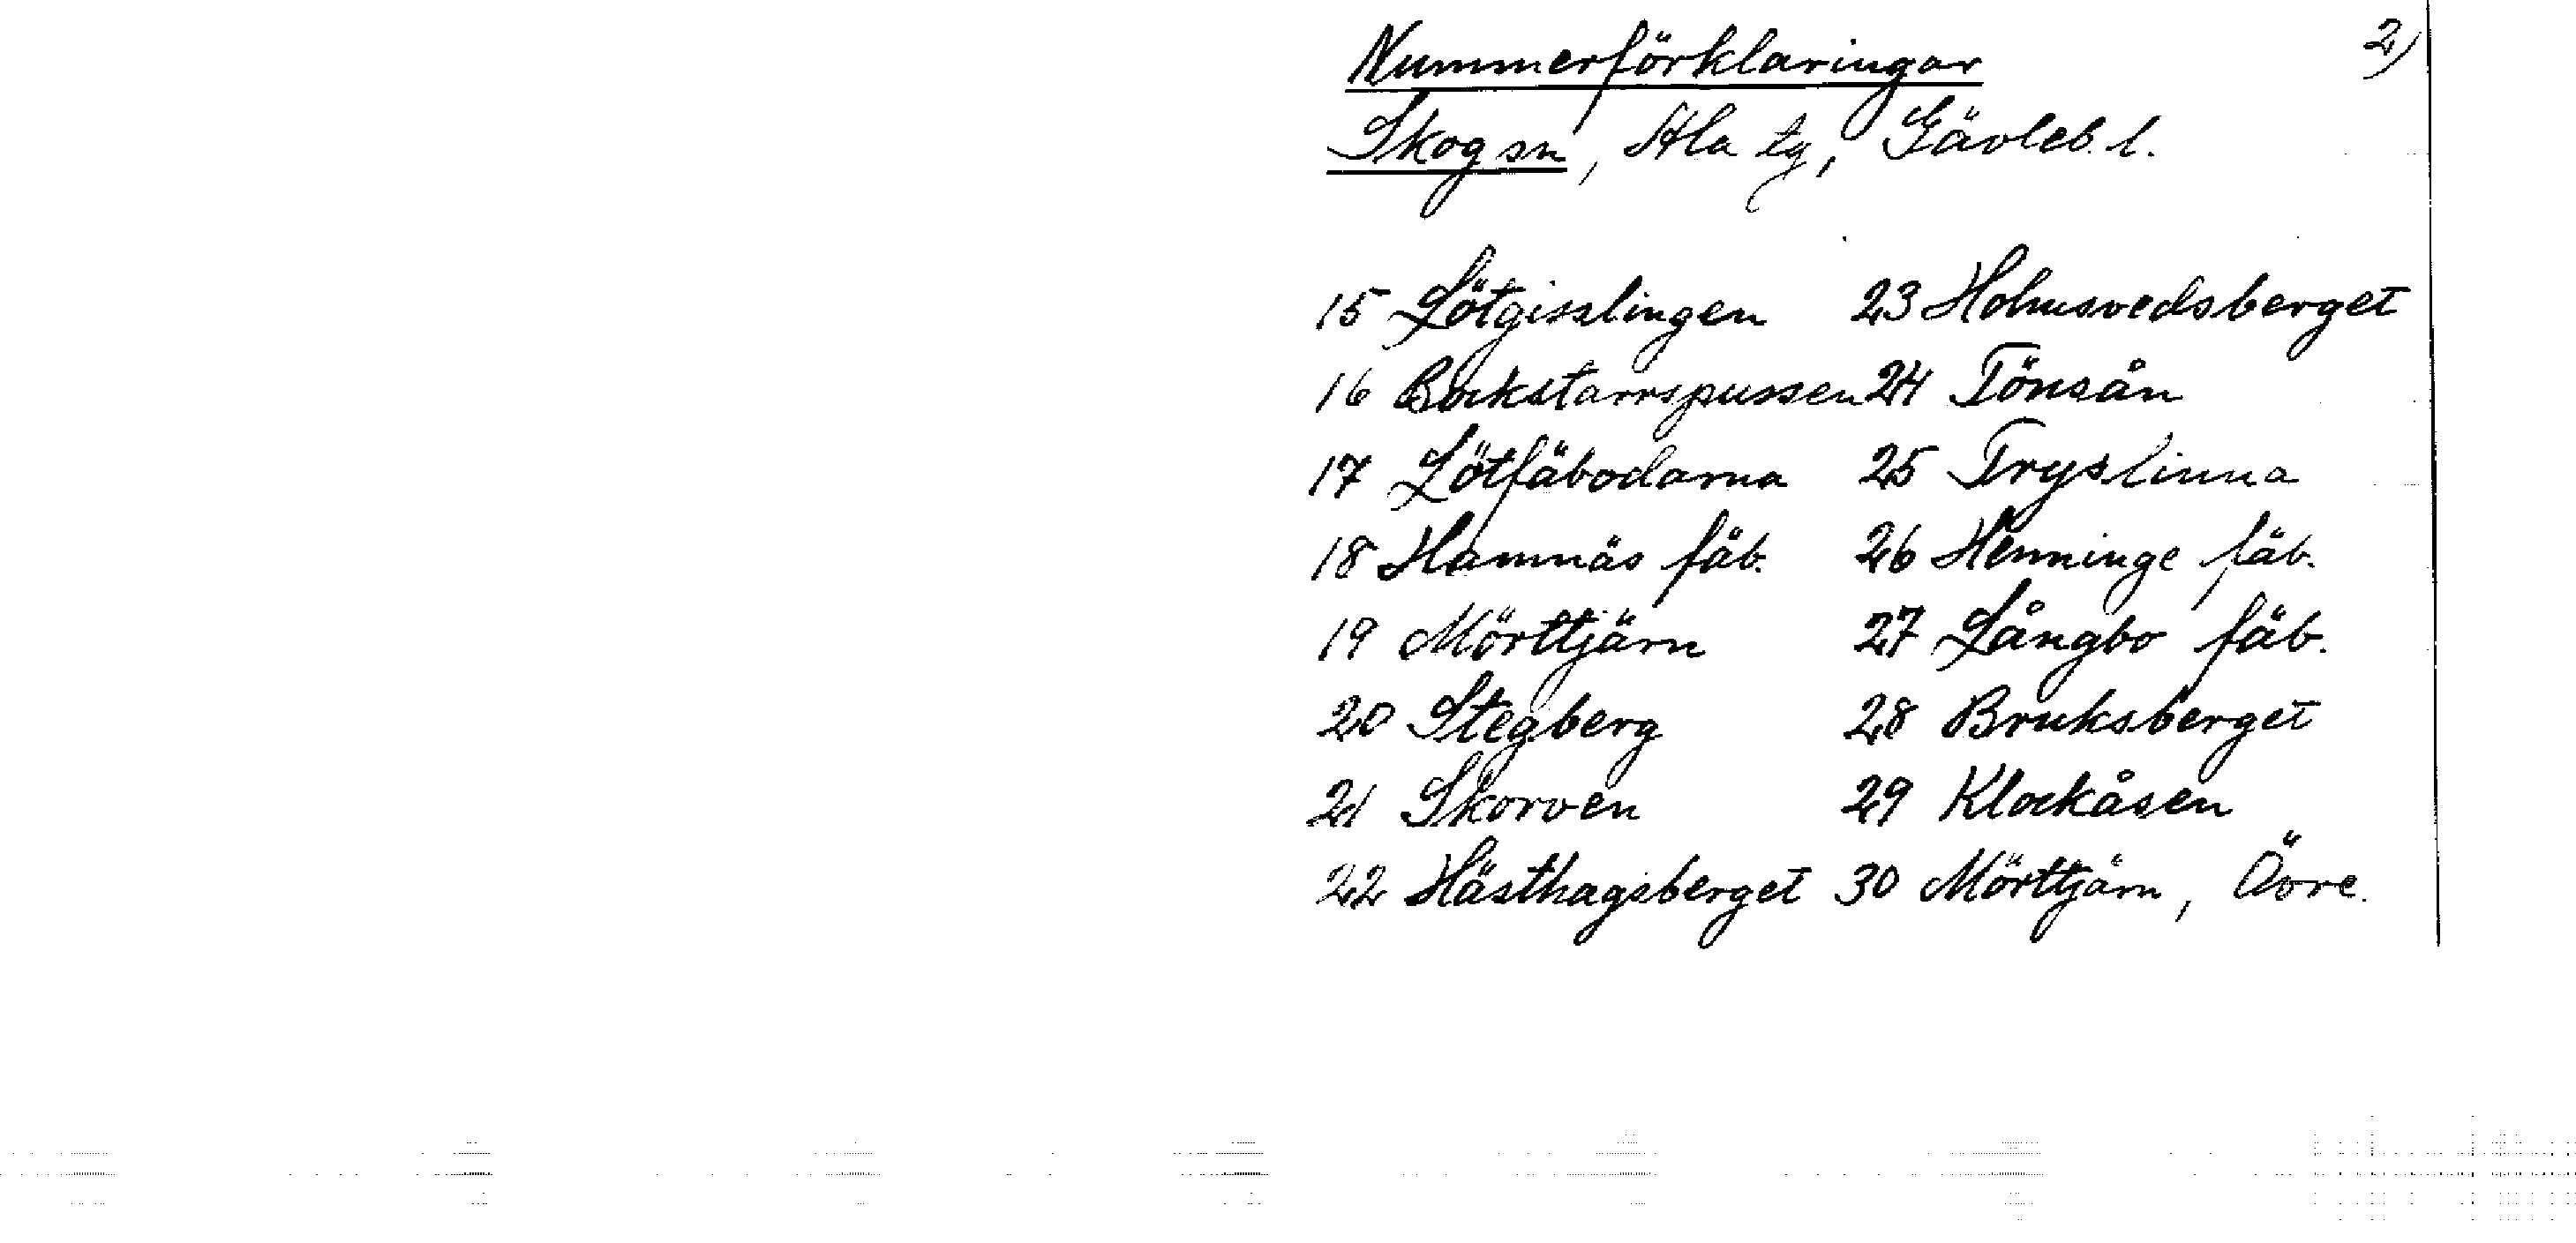 Nummerförklaringar 2)
Skog sn, Ala tg, Gävleb. l.
15 Lötgisslingen 23 Holmsvedsberget
16 Bockstarrspussen 24 Tönsån
17 Lötfäbodarna 25 Tryslinna
18 Hamnäs fäb. 26 Henninge fäb.
19 Mörttjärn 27 Långbo fäb.
20 Stegberg 28 Bruksberget
21 Skorven 29 Klockåsen
22 Hästhagsberget 30 Mörttjärn, Övre.